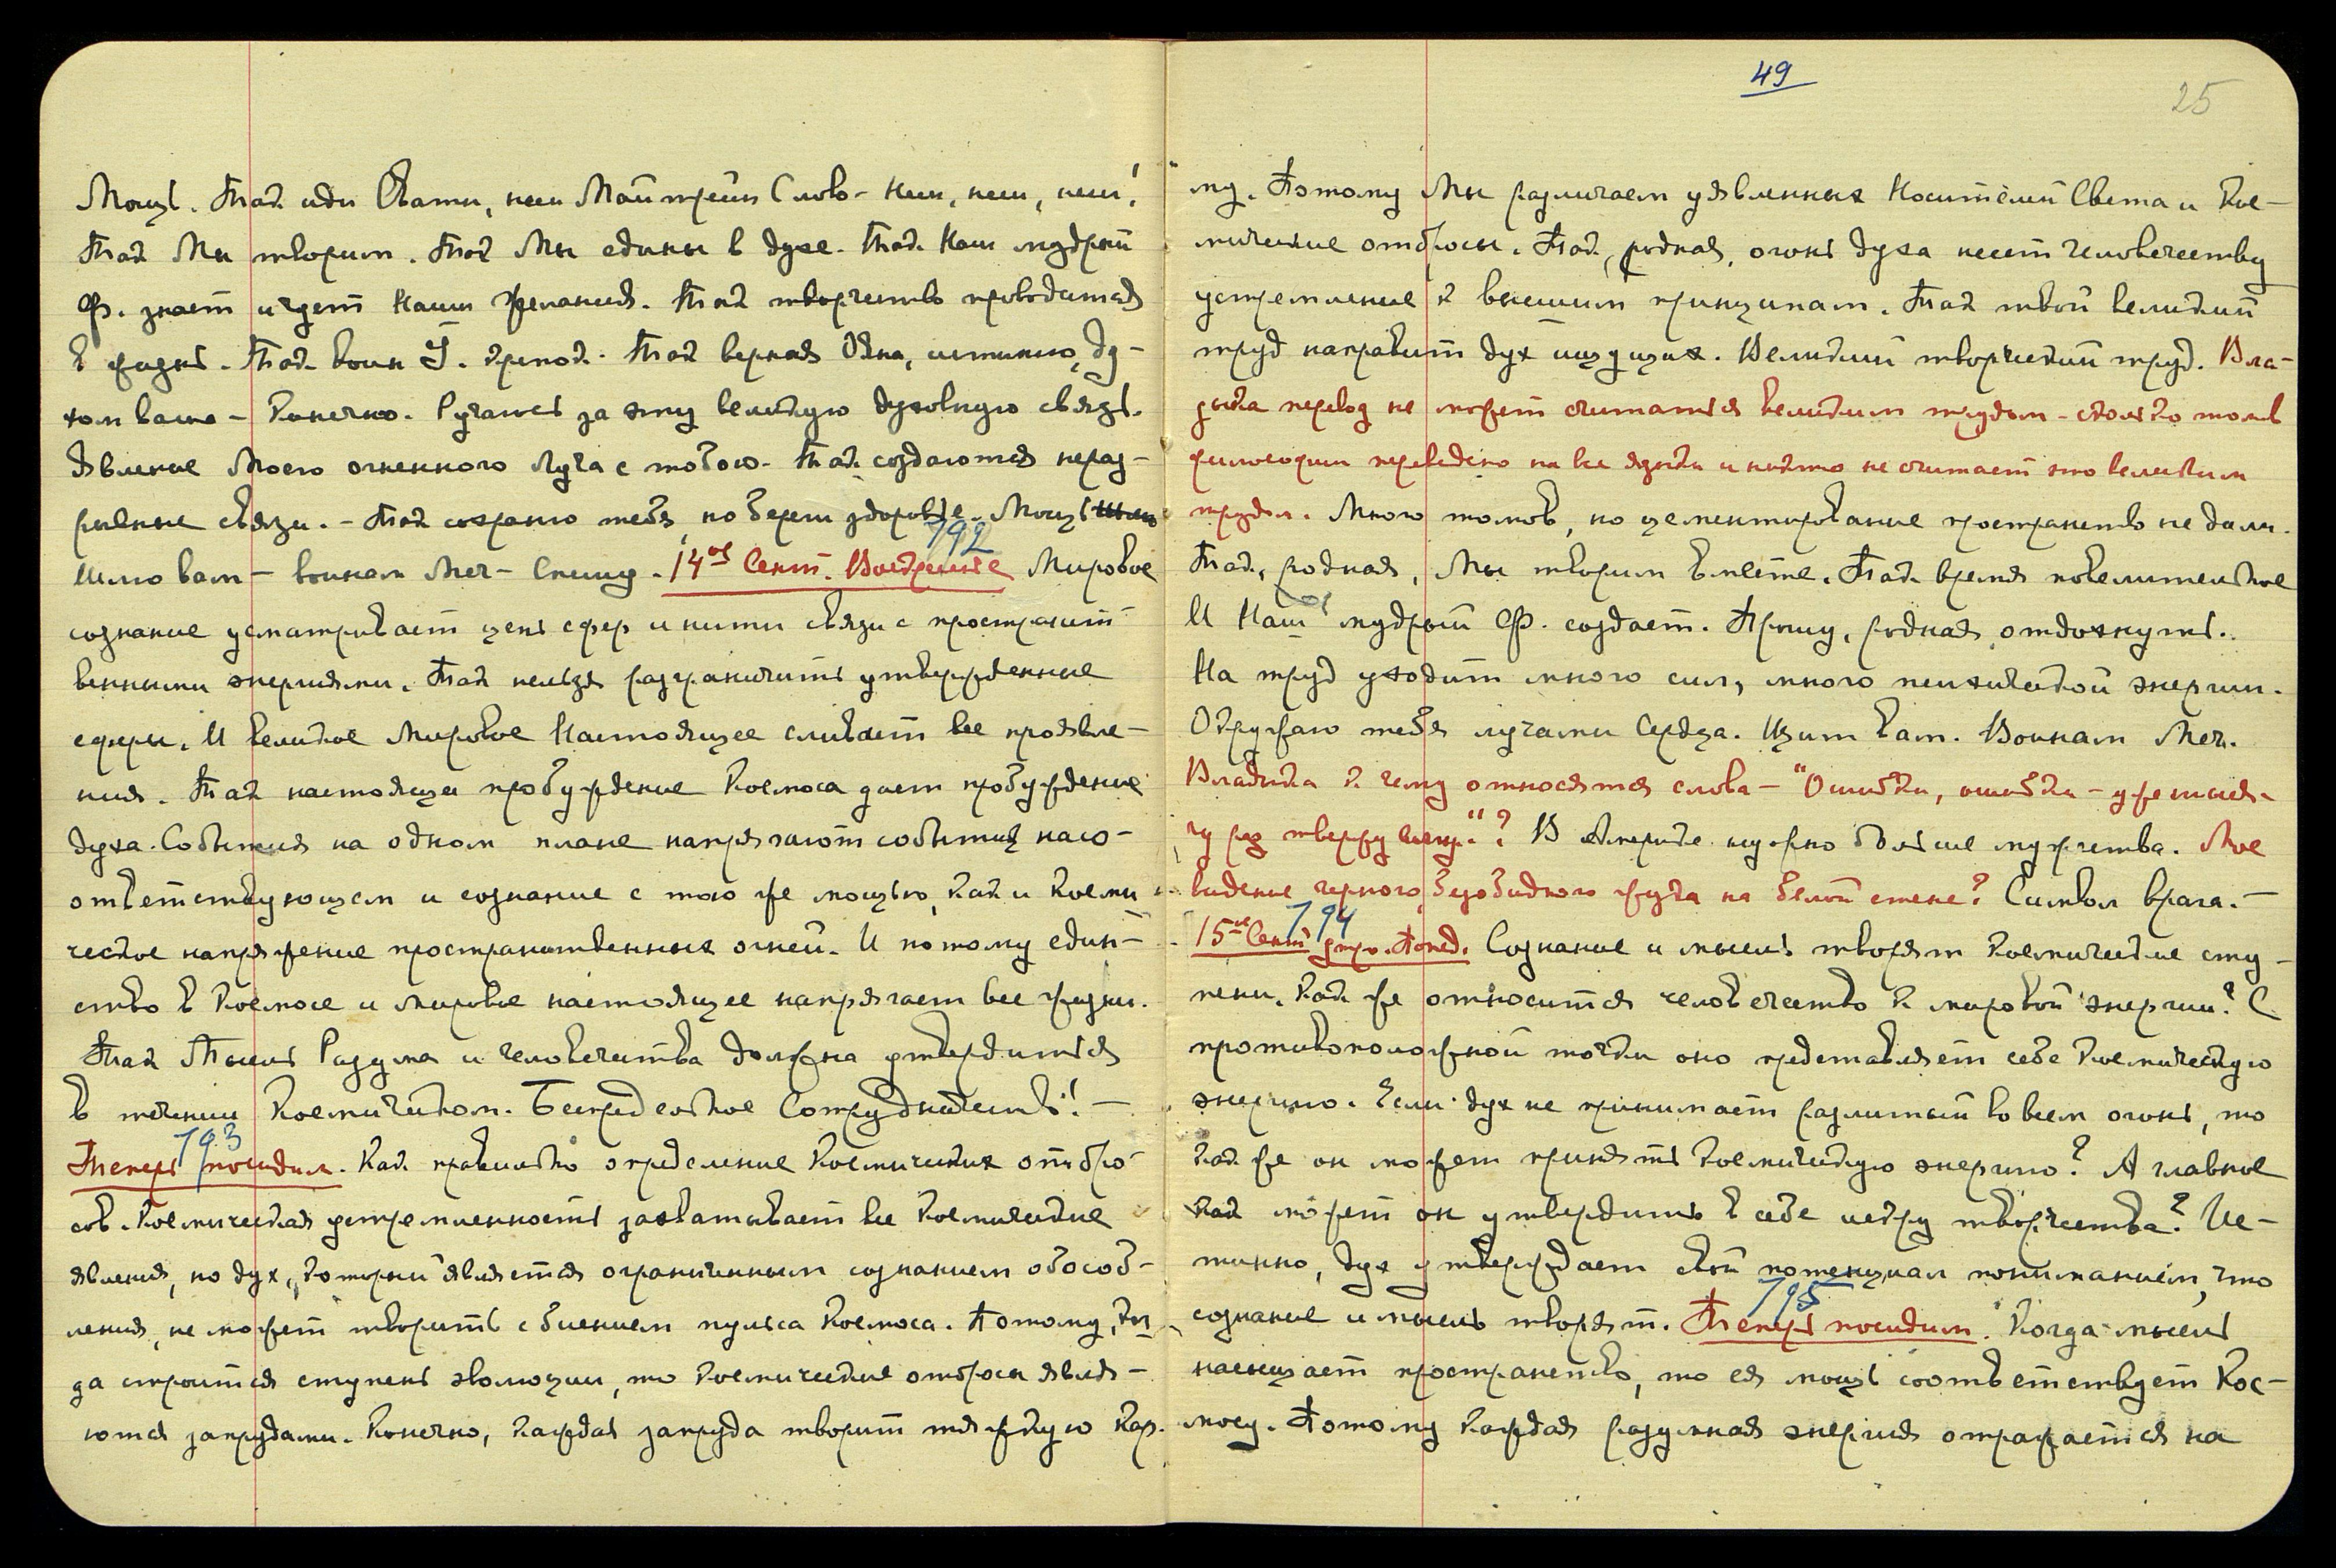 Мощь. Так иди Свати, неси Майтрейи Слово – неси, неси, неси!
Так Мы творим. Так Мы едины в духе. Так Наш мудрый
Ф. знает и чует Наши желания. Так творчество проводится
в жизнь. Так воин Й. крепок. Так верная Ояна, истинно, ду-
хом ваша – Конечно. Ручаюсь за эту великую духовную связь.
Явление Моего огненного Луча с тобою. Так создаются нераз-
рывные связи. – Так сохраню тебя, но береги здоровье. Мощь
792
Шлю вам – воинам Меч – Спешу. 14ое Сент. Воскресенье Мировое
сознание усматривает цепь сфер и нити связи с пространст
венными энергиями. Так нельзя разграничить утвержденные
сферы. И великое Мировое Настоящее сливает все проявле-
ния. Так настоящее пробуждение Космоса дает пробуждение
духа. События на одном плане напрягают события на со-
ответствующем и сознание с тою же мощью, как и Косми
ческое напряжение пространственных огней. И потому един-
ство в Космосе и мировое настоящее напрягает все жизни.
Так Мысль Разума и человечества должна утвердиться
в течении Космическом. Беспредельное Сотрудничество! –
793
Теперь посидим. Как правильно определение Космических отбро-
сов. Космическая устремленность захватывает все Космические
явления, но дух, который является ограниченным сознанием обособ-
ления, не может творить с биением пульса Космоса. Потому, ког
да строится ступень эволюции, то Космические отбросы явля-
ются запрудами. Конечно, каждая запруда творит тяжкую Кар-
49
25
му. Потому Мы различаем уявленных Носителей Света и Кос-
мические отбросы. Так, родная, огонь духа несет человечеству
устремление к высшим принципам. Так твой великий
труд направит дух ищущих. Великий творческий труд. Вла-
дыка перевод не может считаться великим трудом – столько томов
философии переведено на все языки и никто не считает это великим
трудом. Много томов, но цементирование пространства не дали.
Так, родная, Мы творим вместе. Так время повелительное
И Наш мудрый Ф. создает. Прошу, родная, отдохнуть.
На труд уходит много сил, много психической энергии.
Окружаю тебя лучами Сердца. Щит вам. Воинам Меч.
Владыка к чему относятся слова – "Ошибки, ошибки – уже тыся-
чу раз твержу всему."? В Америке нужно больше мужества. Мое
видение черного, безобидного жука на белой стене? Символ врага. –
794
15ое Сент. утро. Понед. Сознание и мысль творят Космические сту-
пени. Как же относится человечество к мировой энергии? С
противоположной точки оно представляет себе Космическую
энергию. Если дух не принимает разлитый во всем огонь, то
как же он может принять Космическую энергию? А главное
как может он утвердить в себе искру творчества? Ис-
тинно, дух утверждает свой потенциал пониманием, что
795
сознание и мысль творят. Теперь посидим. Когда мысль
насыщает пространство, то ея мощь соответствует Кос-
мосу. Потому каждая разумная энергия отражается на